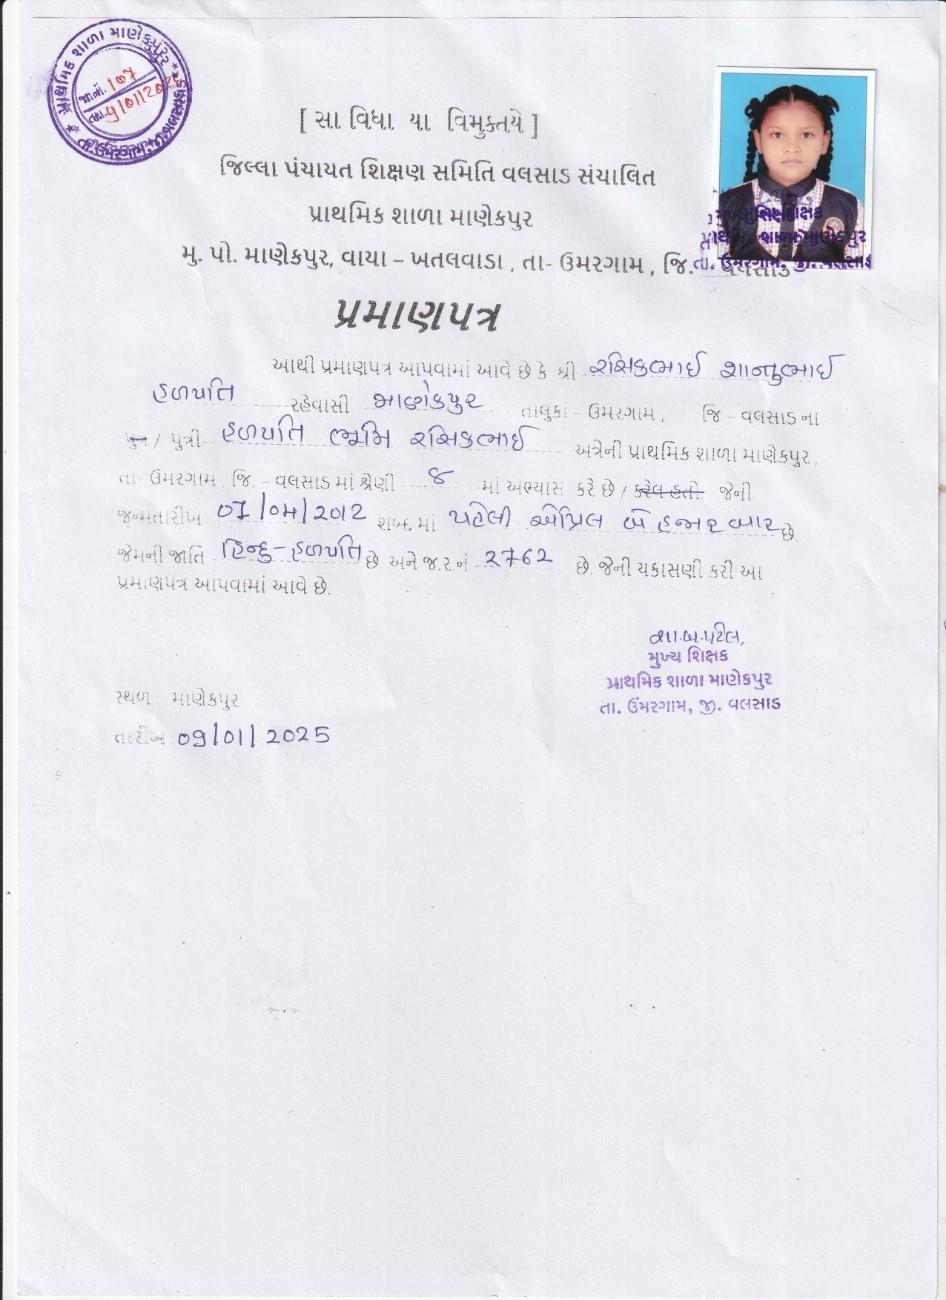 પ્રાથમિક શાળા માણેકપુર
જા.નં. 107
[ સા વિધા યા વિમુક્તયે ]
જિલ્લા પંચાયત શિક્ષણ સમિતિ વલસાડ સંચાલિત
પ્રાથમિક શાળા માણેકપુર
મુ. પો. માણેકપુર, વાયા – ખતલવાડા , તા- ઉમરગામ , જિ. વલસાડ
મુખ્ય શિક્ષક
પ્રાથમિક શાળા માણેકપુર
તા. ઉંમરગામ, જી. વલસાડ
પ્રમાણપત્ર
આથી પ્રમાણપત્ર આપવામાં આવે છે કે શ્રી રસિકભાઈ શાન્તુભાઈ
હળપતિ રહેવાસી માણેકપુર તાલુકા - ઉમરગામ , જિ – વલસાડ ના
પુત્ર / પુત્રી હળપતિ ભૂમિ રસિકભાઈ અત્રેની પ્રાથમિક શાળા માણેકપુર,
તા- ઉમરગામ , જિ. – વલસાડ માં શ્રેણી ૪ માં અભ્યાસ કરે છે / કરેલ હતો. જેની
જન્મતારીખ 01/04/2012 શબ્દ માં પહેલી એપ્રિલ બે હજાર બાર છે.
જેમની જાતિ હિન્દુ-હળપતિ છે અને જ.ર.નં - 2762 છે. જેની ચકાસણી કરી આ
પ્રમાણપત્ર આપવામાં આવે છે.
મુખ્ય શિક્ષક
પ્રાથમિક શાળા માણેકપુર
તા. ઉંમરગામ, જી. વલસાડ
સ્થળ : માણેકપુર
તારીખ 09/01/2025